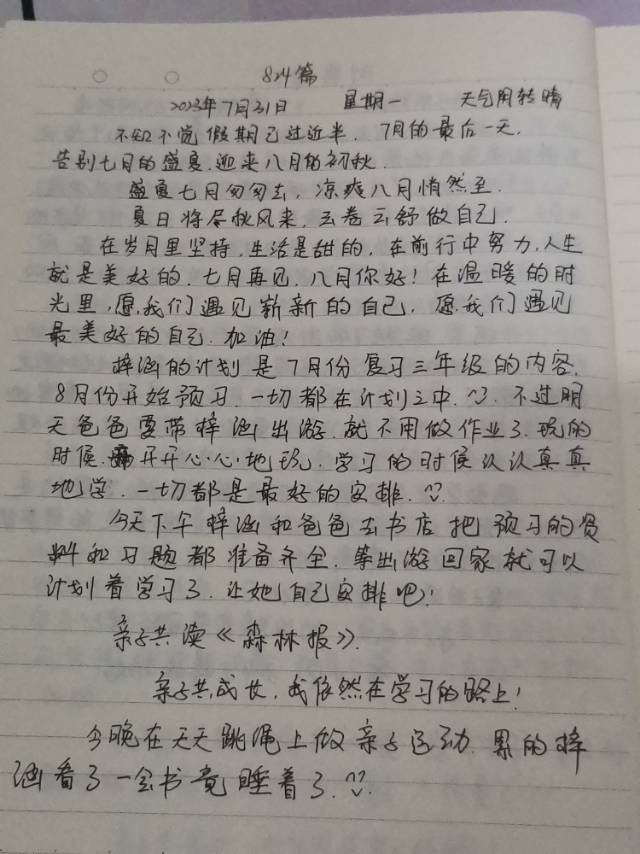 824篇
2023年7月31日 星期一 天气阴转晴
不知不觉假期已过近半. 7月的最后一天,
告别七月的盛夏.迎来八月的初秋.
盛夏七月匆匆去, 凉爽八月悄然至.
夏日将尽秋风来, 云卷云舒做自己.
在岁月里坚持,生活是甜的,在前行中努力,人生
就是美好的.七月再见,八月你好!在温暖的时
光里,愿我们遇见崭新的自己, 愿我们遇见
最美好的自己.加油!
梓涵的计划是7月份复习三年级的内容,
8月份开始预习.一切都在计划之中. 不过明
天爸爸要带梓涵出游.就不用做作业了.玩的
时候开开心心地玩.学习的时候认认真真
地学.一切都是最好的安排.
今天下午梓涵和爸爸去书店把预习的资
料和习题都准备齐全.等出游回家就可以
计划着学习了.让她自己安排吧!
亲子共读《森林报》.
亲子共成长,我依然在学习的路上!
今晚在天天跳绳上做亲子运动.累的梓
涵看了一会书竟睡着了.